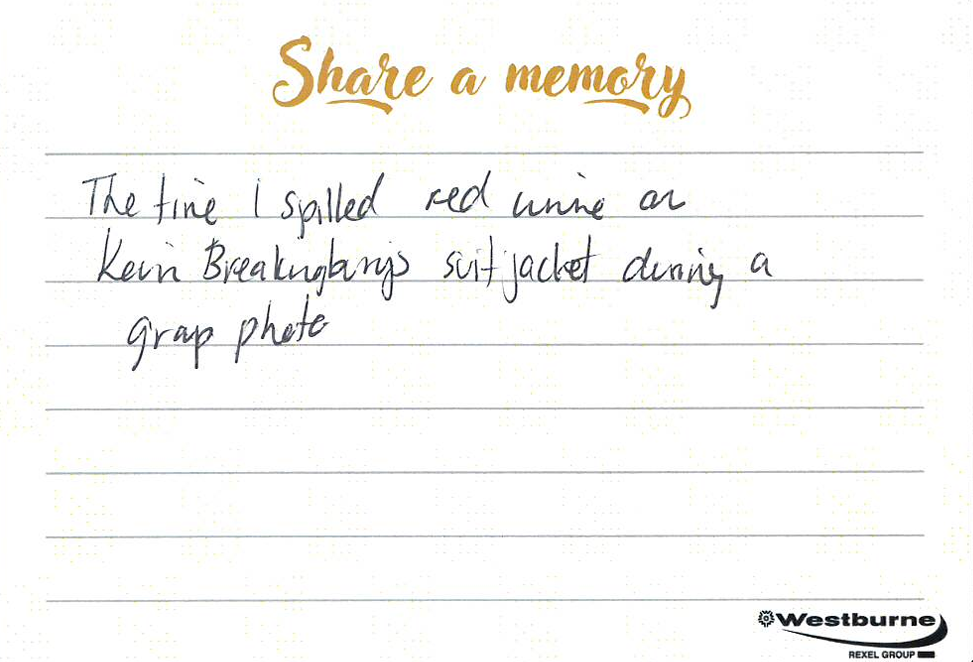 Share a memory
The time I spilled red wine on
Kevin Breakingbury's suit jacket during a
group photo
Westburne
REXEL GROUP